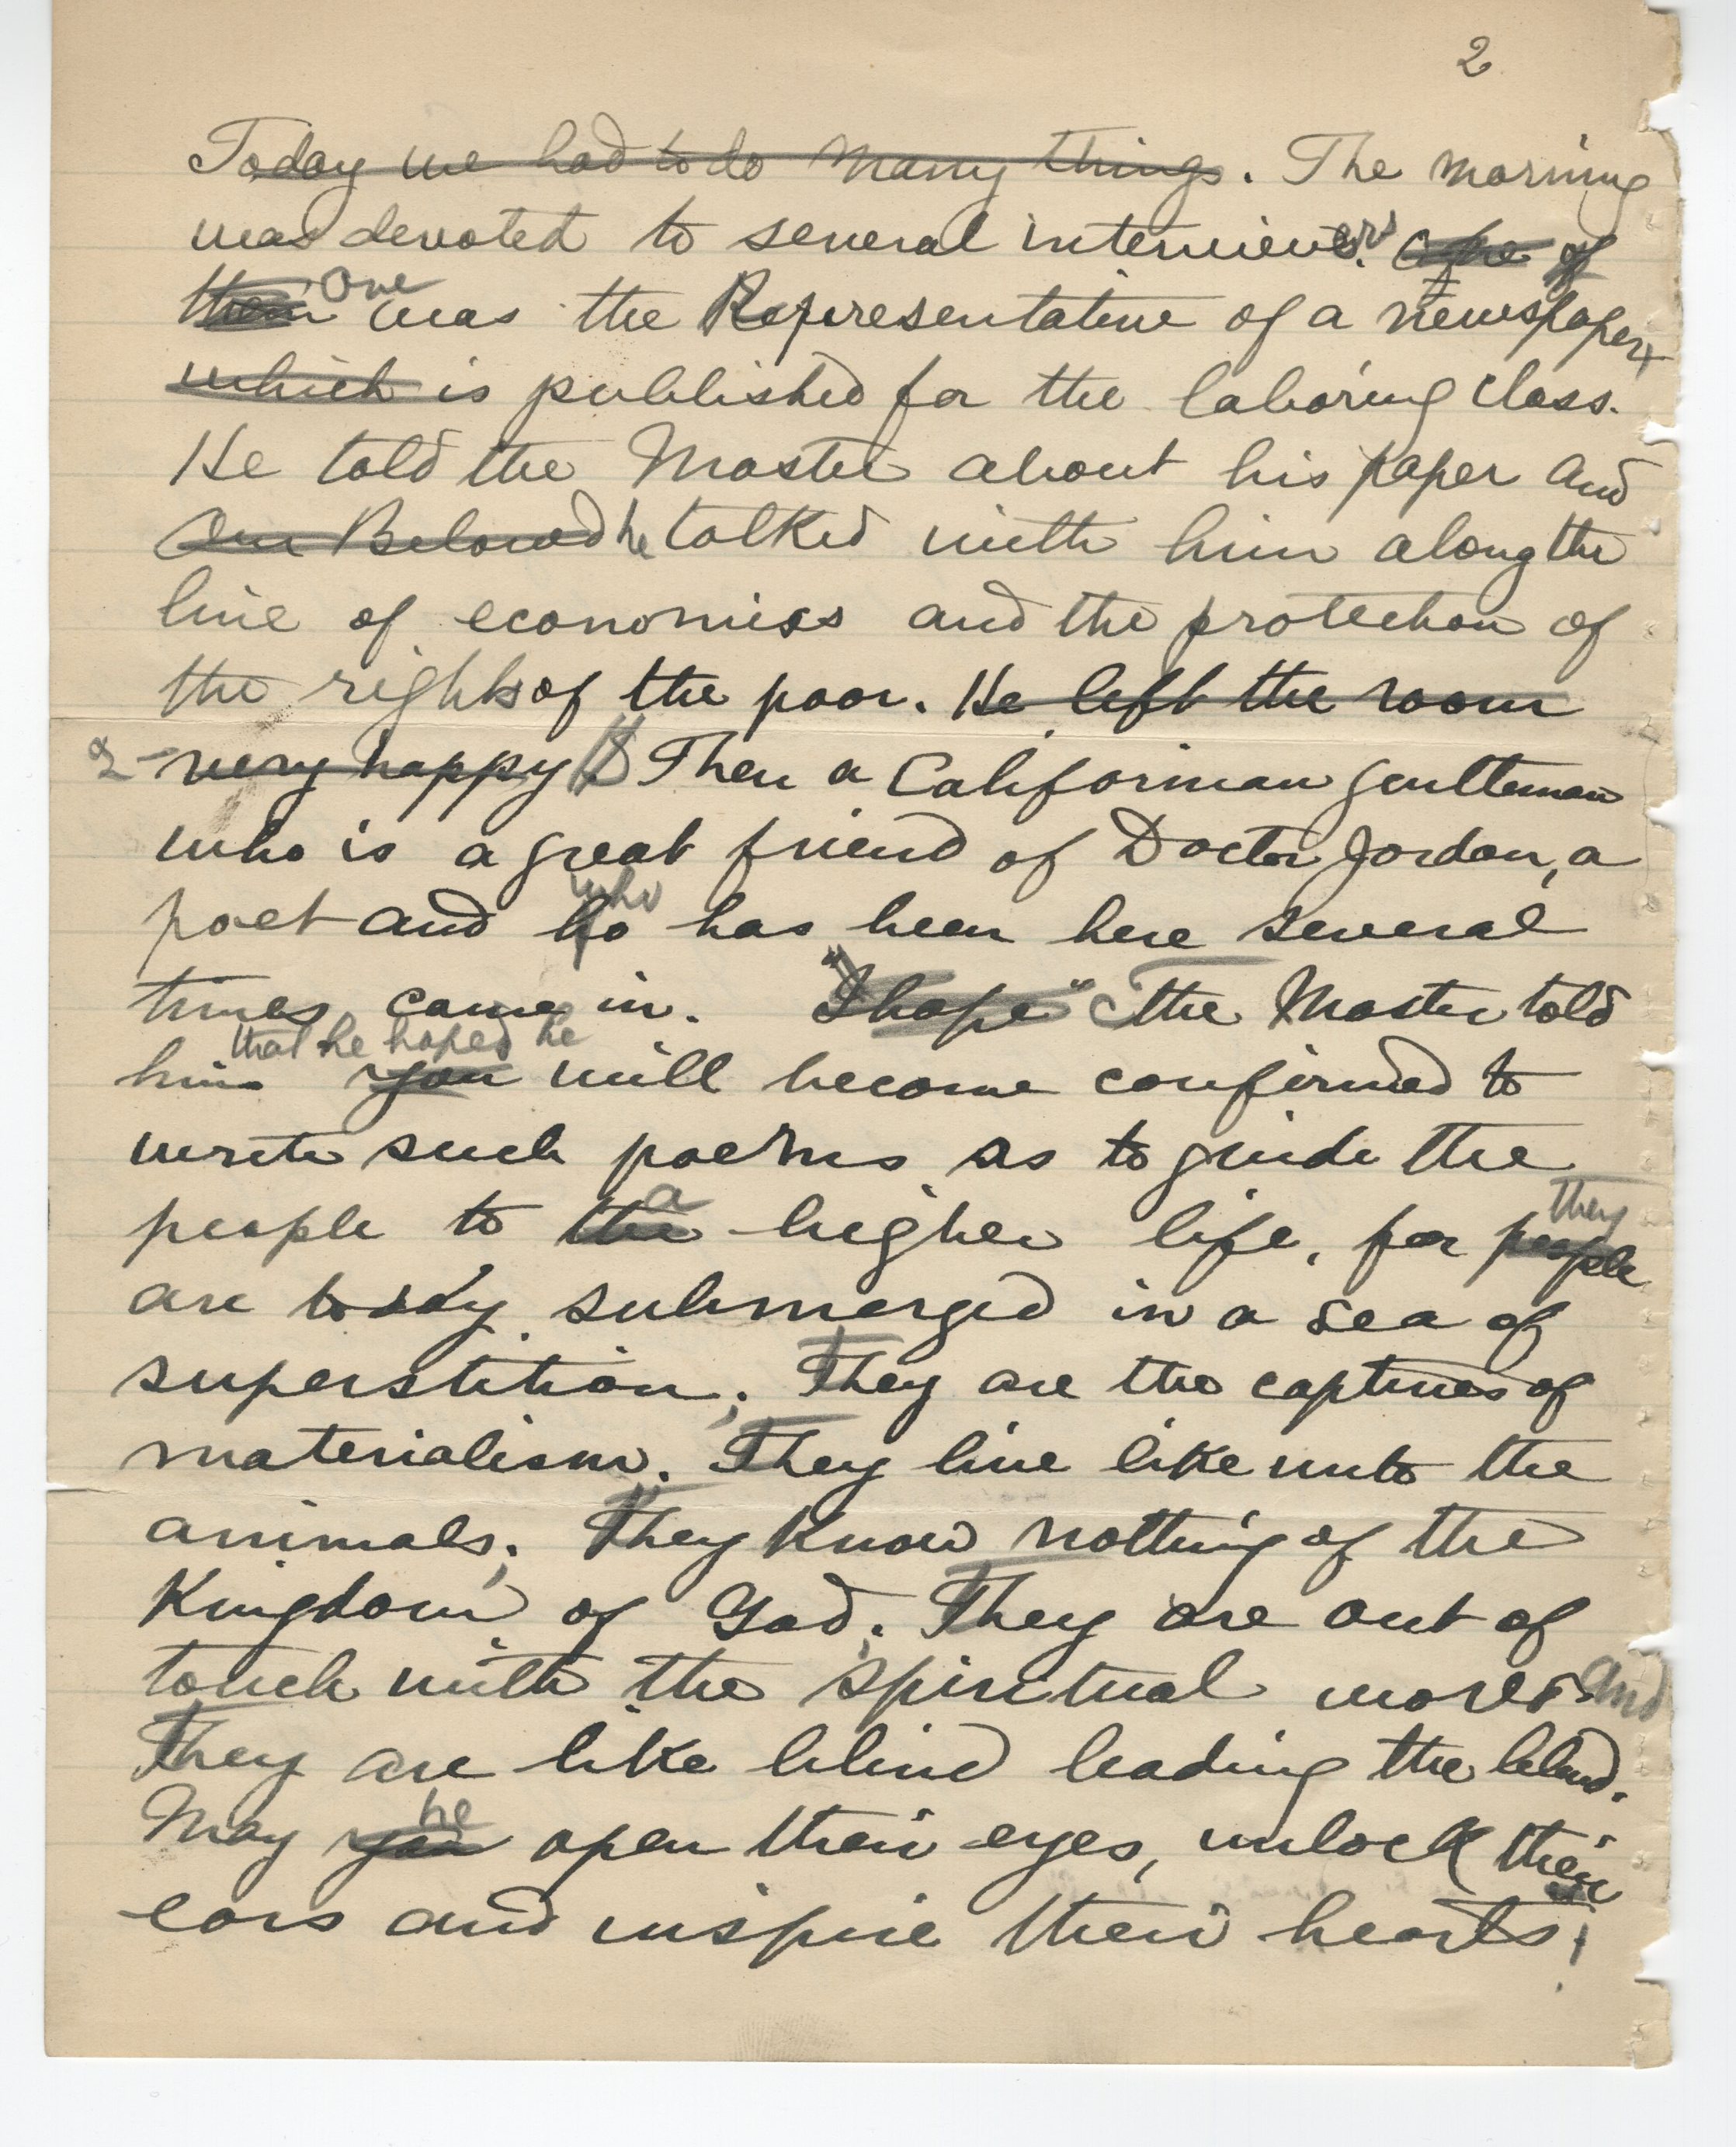 2
Today we had to do many things. The morning
was devoted to several interviewers. One of
them One was the Representative of a newspaper
which is published for the laboring class.
He told the Master about his paper and
Our Beloved he talked with him along the
line of economics and the protection of
the rights of the poor. He left the room
2- very happy. Then a Californian gentleman
who is a great friend of Doctor Jordan, a
who
poet and has been here several
times came in. "I hope" the Master told
that he hoped he
him you will become confirmed to
write such poems as to guide the
a they
people to the higher life, for people
are today submerged in a sea of
superstition; They are the captives of
materialism; They live like unto the
animals; They know nothing of the
Kingdom of God; They are out of
touch with the spiritual world and
They are like blind leading the blind.
he
May you open their eyes, unlock their
ears and inspire their hearts!